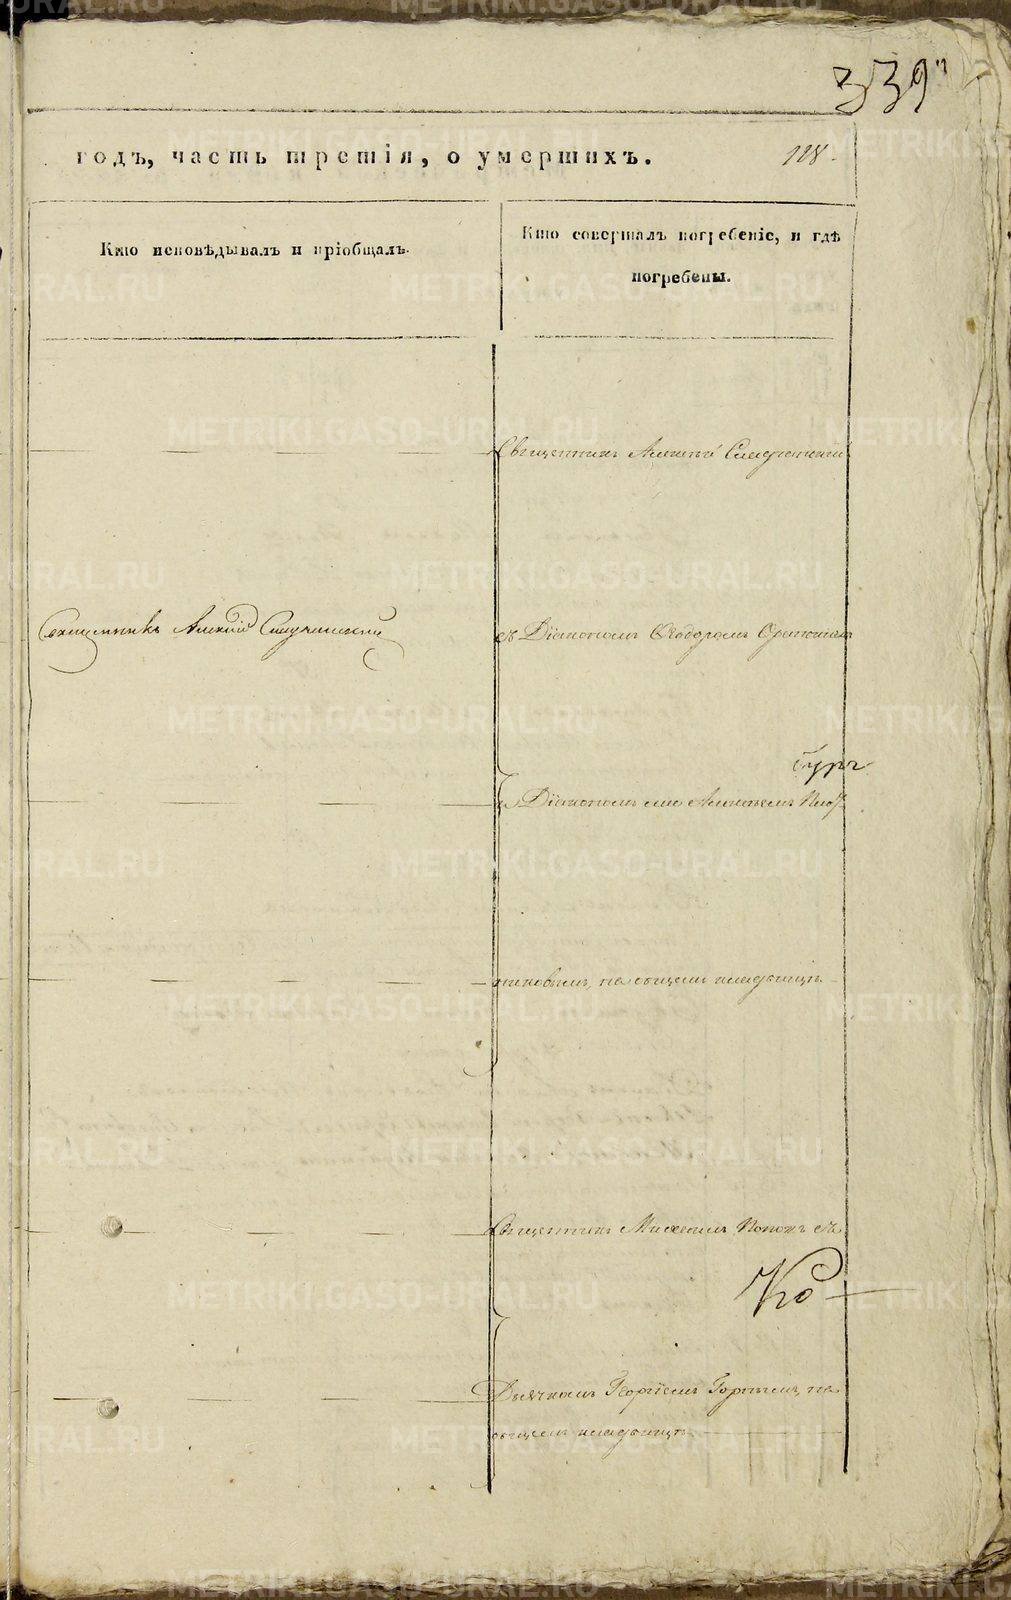 339
годъ, часть третія, о умершихъ.
118.
Кто исповѣдывалъ и пріобщалъ.
Кто совершалъ погребеніе, и гдѣ
погребены.
Священникъ Алексѣй
Священникъ Алексій
съ Діакономъ Ѳеодоромъ
и Діакономъ Алексѣемъ
никовымъ, на общемъ кладбищѣ.
Священникъ Михаилъ Поповъ съ
Дьячкомъ Георгіемъ на
общемъ кладбищѣ
METRIKI.GASO-URAL.RU